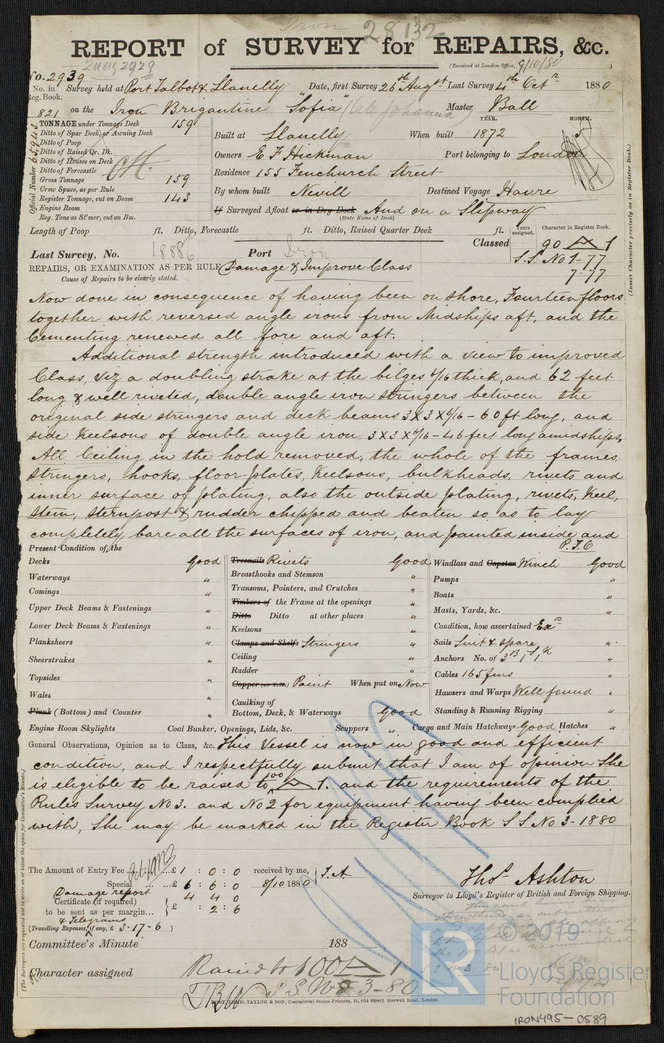 Iron 28132
REPORT of SURVEY for REPAIRS, &c.
(Received at London Office, 9/10/80
No. 2939
No. in Survey held at Port Talbot & Llanelly Date, first Survey 26th Augst Last Survey 4th Octr 1880
Reg. Book.
821 on the Iron Brigantine Sofia (late Johanna) Master Ball
TONNAGE under Tonnage Deck 159
Ditto of Spar Deck, or Awning Deck
Ditto of Poop
Ditto of Raised Qr. Dk.
Ditto of Houses on Deck
Ditto of Forecastle
Gross Tonnage 159
Crew Space, as per Rule
Register Tonnage, cut on Beam 143
Engine Room
Reg. Tons as St'mer, cut on Bm.
Official Number
YEAR. MONTH.
Built at Llanelly When built 1872
Owners E F Hickman Port belonging to London
Residence 155 Fenchurch Street
By whom built Nevill Destined Voyage Havre
If Surveyed Afloat or in Dry Dock And on a Slipway
(State Name of Dock)
Length of Poop ft. Ditto, Forecastle ft. Ditto, Raised Quarter Deck ft.
Years assigned. Character in Register Book.
Classed 90 A 1
S.S. No 1-77
7-77
(Insert Character precisely as in Register Book.)
Last Survey, No. 18886 Port Iron
REPAIRS, OR EXAMINATION AS PER RULE Damage & Improve Class
Cause of Repairs to be clearly stated.
Now done in consequence of having been on shore, Fourteen floors
together with reversed angle irons from Midships aft, and the
Cementing renewed all fore and aft.
Additional strength introduced with a view to improved
Class, viz a doubling strake at the bilges 6/16 thick, and 62 feet
long & well riveted, double angle iron stringers between the
original side stringers and deck beams 3 X 3 X 6/16 - 60 ft long, and
side Keelsons of double angle iron 3 X 3 X 7/16 - 46 feet long amidships,
All Ceiling in the hold removed, the whole of the frames
stringers, hooks, floor-plates, Keelsons, bulkheads, rivets and
inner surface of plating, also the outside plating, rivets, keel,
stem, sternpost & rudder chipped and beaten so as to lay
completely bare all the surfaces of iron, and painted inside and
P.T.O
Present Condition of the
Decks Good
Waterways "
Comings "
Upper Deck Beams & Fastenings "
Lower Deck Beams & Fastenings "
Planksheers "
Sheerstrakes "
Topsides "
Wales "
Plank (Bottom) and Counter "
Engine Room Skylights
Treenails Rivets Good
Breasthooks and Stemson "
Transoms, Pointers, and Crutches "
Timbers of the Frame at the openings "
Ditto Ditto at other places "
Keelsons "
Clamps and Shelfs Stringers "
Ceiling "
Rudder "
Copper (or Y.M.) Paint When put on Now
Caulking of
Bottom, Deck, & Waterways Good
Coal Bunker, Openings, Lids, &c. Scuppers "
Windlass and Capstan Winch Good
Pumps "
Boats "
Masts, Yards, &c. "
Condition, how ascertained Exn
Sails Suit & spare "
Anchors No. of 3 B, 1 S, 1 K "
Cables 165 fms "
Hawsers and Warps Well found "
Standing & Running Rigging "
Cargo and Main Hatchways Good Hatches "
General Observations, Opinion as to Class, &c. This Vessel is now in good and efficient
condition, and I respectfully submit that I am of opinion She
is eligible to be raised to 100 A 1. and the requirements of the
Rules Survey No 3. and No 2 for equipment having been complied
with, She may be marked in the Register Book S S No 3 - 1880
The Amount of Entry Fee £ 1 : 0 : 0 received by me,
Special £ 6 : 6 : 0 8/10 1880 T.A
Damage report 4 4 0
Certificate (if required)
to be sent as per margin : 2 : 6
& Telegrams
(Travelling Expenses, if any, £ 3-17-6)
Thos. Ashton
Surveyor to Lloyd's Register of British and Foreign Shipping.
Committee's Minute 188
Character assigned Raised to 100 A 1
S S No 3 - 80
© 2019
LR
Lloyd's Register
Foundation
TAYLOR & SON, Commercial Steam Printers, 19, Old Street, Goswell Road, London.
IRON495-0589